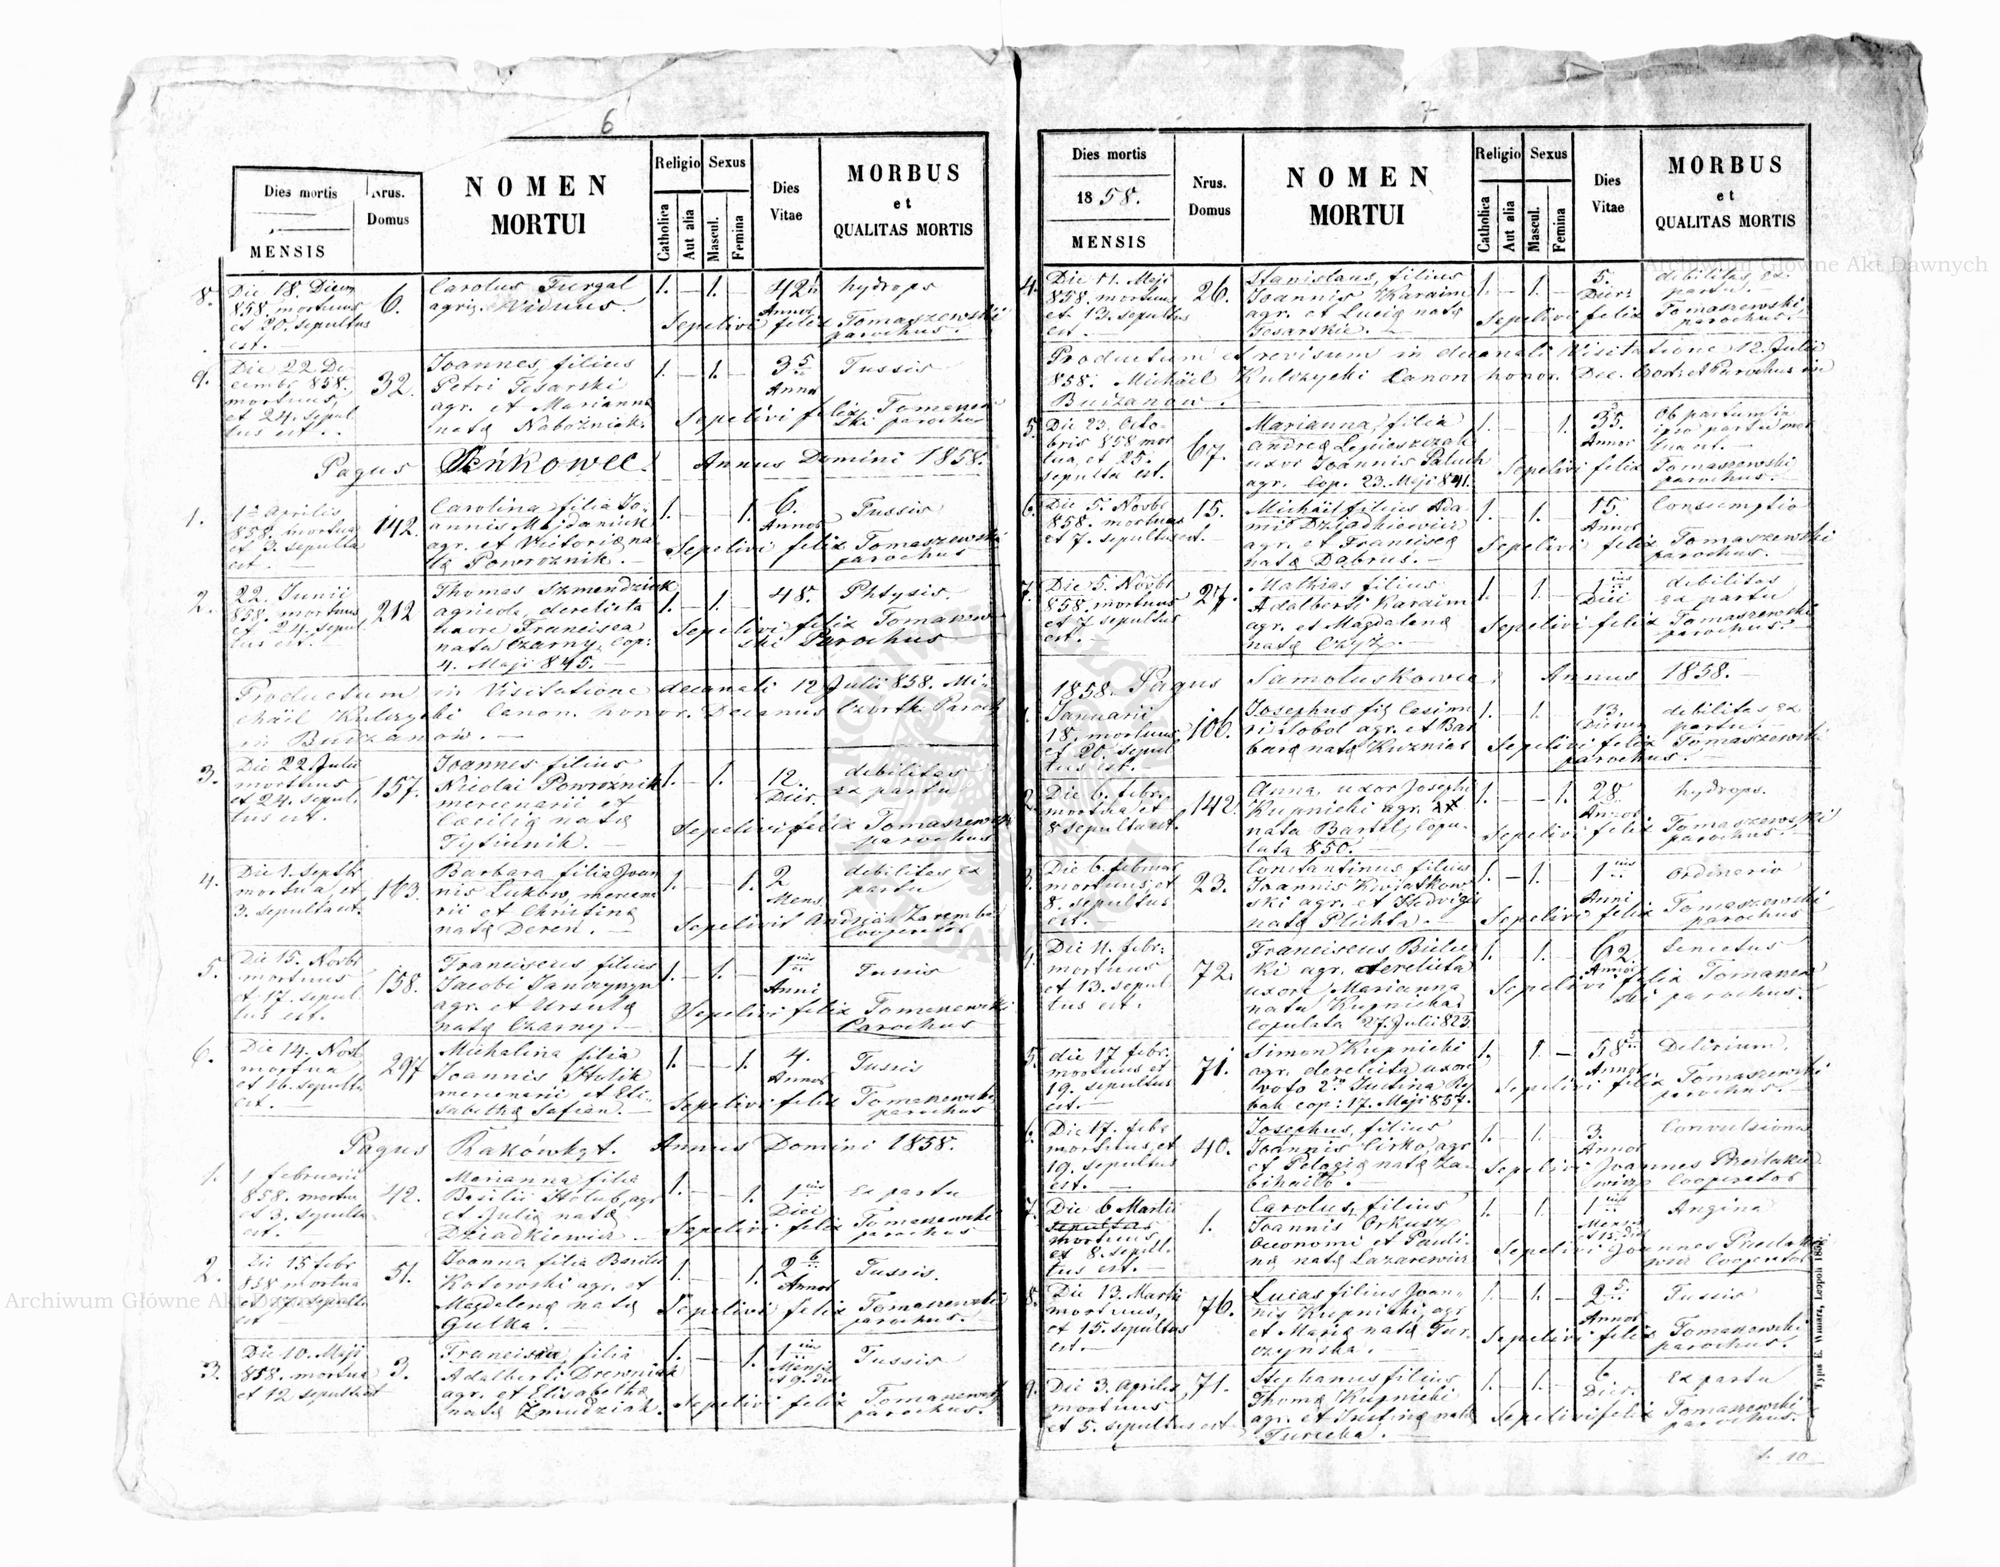 6
Dies mortis
MENSIS
Nrus. Domus
NOMEN MORTUI
Religio
Catholica
Aut alia
Sexus
Mascul.
Femina
Dies Vitae
MORBUS et QUALITAS MORTIS
8. Die 18. 6. Carolus Furgal 1. — 1. — 42 hydrops
858. mortuus agric. Viduus. Annor
et 20. sepultus Sepelivi felix Tomaszewski
est. — parochus.
9. Die 22 De- 32. Joannes, filius 1. — 1. — 3 Tussis
cembr. 858. Petri Tesarski Annor
mortuus, agr. et Marianna Sepelivi felix Tomaszew
et 24. sepul natę Nabożniak. ski parochus
tus est. —
Pagus Annus Domini 1858.
1. 1 Aprilis 142. Carolina filia Jo- 1. — — 1. 6. Tussis
858. mortua annis Majdaniuk Annor
et 3. sepulta agr. et Victorię na- Sepelivi felix Tomaszewski
est. — tę Powroznik. — parochus
2. 22. Junii 212 Thomas Szmendziuk 1. — 1. — 48. Phtysis.
858. mortuus agricola, derelicta
et 24. sepul uxore Francisca Sepelivi felix Tomaszew
tus est. — nata Czarny, cop: ski Parochus
4. Maji 845. —
Productum in Visitatione decanali 12 Julii 858. Mi-
chäel Kulczycki Canon. honor. Decanus Czortk. Paroch
in Budzanow. —
3. Die 22. Julii 157. Joannes filius 1. — 1. — 12. debilitas
mortuus Nicolai Powroznik Dier. ex partu
et 24. sepul. mercenarii et
tus est. Cæcilię natę Sepelivi felix Tomaszewski
Tytiunik. — parochus
4. Die 1. Septbr 163. Barbara filia Joan 1. — — 1. 2 debilitas ex
mortua, et nis Lukow, mercena Mens. partu
3. sepulta est. rii et Christinę Sepelivit Andreas Zaremba
natę Deren. — Cooperator
5. Die 15. Novbr 158. Franciscus filius 1. — 1. — 1 Tussis
mortuus Jacobi Janczyszyn Anni
et 17. sepul agr. et Ursulę Sepelivi felix Tomaszewski
tus est. natę Czarny. — Parochus
6. Die 14. Novbr 297 Michalina filia 1. — — 1. 4. Tussis
mortua Joannis Stolik Annor
et 16. sepulta mercenarii et Eli- Sepelivi felix Tomaszewski
est. — sabethę Safian. — parochus
Pagus Annus Domini 1858.
1. 1 februarii 42. Marianna filia 1. — — 1. 1 ex partu
858. mortua Basilii Holub, agr Diei
et 3. sepulta et Julię natę Sepelivi felix Tomaszewski
est. — Dziadkiewicz — parochus
2. Die 15 febr 51. Joanna filia Basilii 1. — — 1. 2 Tussis.
858 mortua Kotowski agr. et Annor
et 17. sepulta Magdalenę natę Sepelivi felix Tomaszewski
est — Gulka. — parochus. —
3. Die 10. Maji 3. Francisca filia 1. — — 1. 1 Tussis
858. mortua Adalberti Drewniak Mensis
et 12 sepulta est agr. et Elisabethę Sepelivi felix Tomaszewski
natę Żmudziak. parochus.
7
Dies mortis
1858.
MENSIS
Nrus. Domus
NOMEN MORTUI
Religio
Catholica
Aut alia
Sexus
Mascul.
Femina
Dies Vitae
MORBUS et QUALITAS MORTIS
4. Die 11. Maji 26. Stanislaus, filius 1. — 1. — 5. debilitas ex
858. mortuus Joannis Karaim Dier: partu.
et 13. sepultus agr. et Lucię natę Sepelivi felix Tomaszewski
est. — Tesarskie. — parochus.
Productum et revisum in decanali Visitatione 12. Julii
858. Michäel Kulczycki Canon honor. Dec. et Parochus in
Budzanow. —
5. Die 23. Octo- 67. Marianna, filia 1. — — 1. 35. Ob partum in
bris 858 mor Andreę Annor ipso partu mor
tua, et 25. uxor Joannis Paluch tua est.
sepulta est. agr. cop. 23. Maji 841. Sepelivi felix Tomaszewski
parochus.
6. Die 5. Novbr 15. Michäil filius Ada 1. — 1. — 15. Consumptio
858. mortuus mis Dziadkiewicz Annor
et 7. sepultus est. — agr. et Franciscę Sepelivi felix Tomaszewski
natę Dąbrus. — parochus. —
7. Die 5. Novbr 27. Mathias filius 1. — 1. — 1 debilitas
858. mortuus Adalberti Karaim Diei ex partu
et 7 sepultus agr. et Magdalenę Sepelivi felix Tomaszewski
est. — natę Czyż. — parochus.
1858. Pagus Samoluskowce. Annus 1858.
1. Januarii 106. Josephus fil Casimi 1. — 1. — 13. debilitas ex
18. mortuus, ri Sobol agr. et Bar Dierum partu.
et 20. sepul barę natę Kuznias Sepelivi felix Tomaszewski
tus est. — parochus.
2. Die 6. febr. 142. Anna, uxor Josephi 1. — — 1. 28. hydrops.
mortua, et Kupnicki agr. Annor
8 sepulta est. nata Bartel, copu- Sepelivi felix Tomaszewski
lata 850. — parochus.
3. Die 6. februar 23. Constantinus filius 1. — 1. — 1 Ordinario
mortuus, et Joannis Kwiatkow Anni
8. sepultus ski agr. et Hedvigis Sepelivi felix Tomaszewski
est. — natę Plichta. — parochus
4. Die 11. febr. 72. Franciscus Bielec 1. 1. — 62. Senectus
mortuus ki agr. derelicta Annor
et 13. sepul uxore Marianna Sepelivi felix Tomaszew
tus est. nata Kupnicka, ski parochus.
Copulata 27. Julii 823.
5. die 17 febr. 71. Simon Kupnicki 1. 1. — 58 Delirium.
mortuus et agr. derelicta uxore Annor
19. sepultus voto 2do Justina Ry Sepelivi felix Tomaszewski
est. — bak cop: 17. Maji 857. parochus.
6. Die 17. febr 40. Josephus, filius 1. — 1. — 3. Convulsiones
mortuus, et Joannis Cirko, agr Annor
19. sepultus et Pelagię natę Za- Sepelivi Joannes
est. — — Cooperator
7. Die 6 Martii 1. Carolus, filius 1. — 1. — 1 Angina
sepultus Joannis Orkusz Mensis
mortuus Oeconomi et Pauli- et 15. Dies
et 8. sepul- nę natę Lazarewicz Sepelivi Joannes
tus est. — Cooperator
8. Die 13. Martii 76. Lucas filius Joan- 1. — 1. — 2 Tussis
mortuus, nis Kupnicki, agr Annor
et 15. sepultus et Marię natę Tur- Sepelivi felix Tomaszewski
est. — czynska. — parochus.
9. Die 3. Aprilis 71. Stephanus filius 1. — 1. — 6 ex partu
mortuus Thomę Kupnicki Dier.
et 5. sepultus est agr. et Justinę natę Sepelivi felix Tomaszewski
Turecka. — parochus.
Typus E. Winiarz, Leopoli
Archiwum Główne Akt Dawnych
Archiwum Główne Akt Dawnych